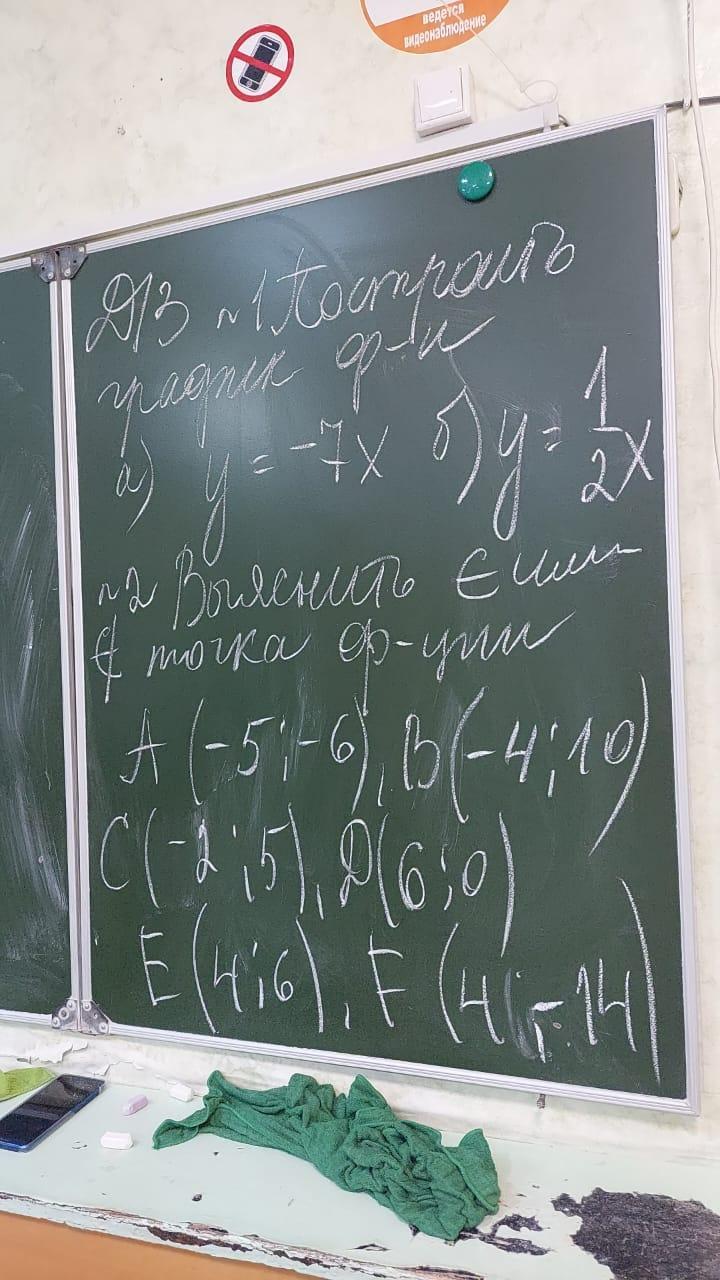 ведется
видеонаблюдение
Д/З №1 Построить
график ф-и
а) y = -7x б) y = 1/2x
№2 Выяснить ∈ или
∉ точка ф-ции
A (-5; -6), B (-4; 10)
C (-2; 5), D (6; 0)
E (4; 6), F (4; -14)